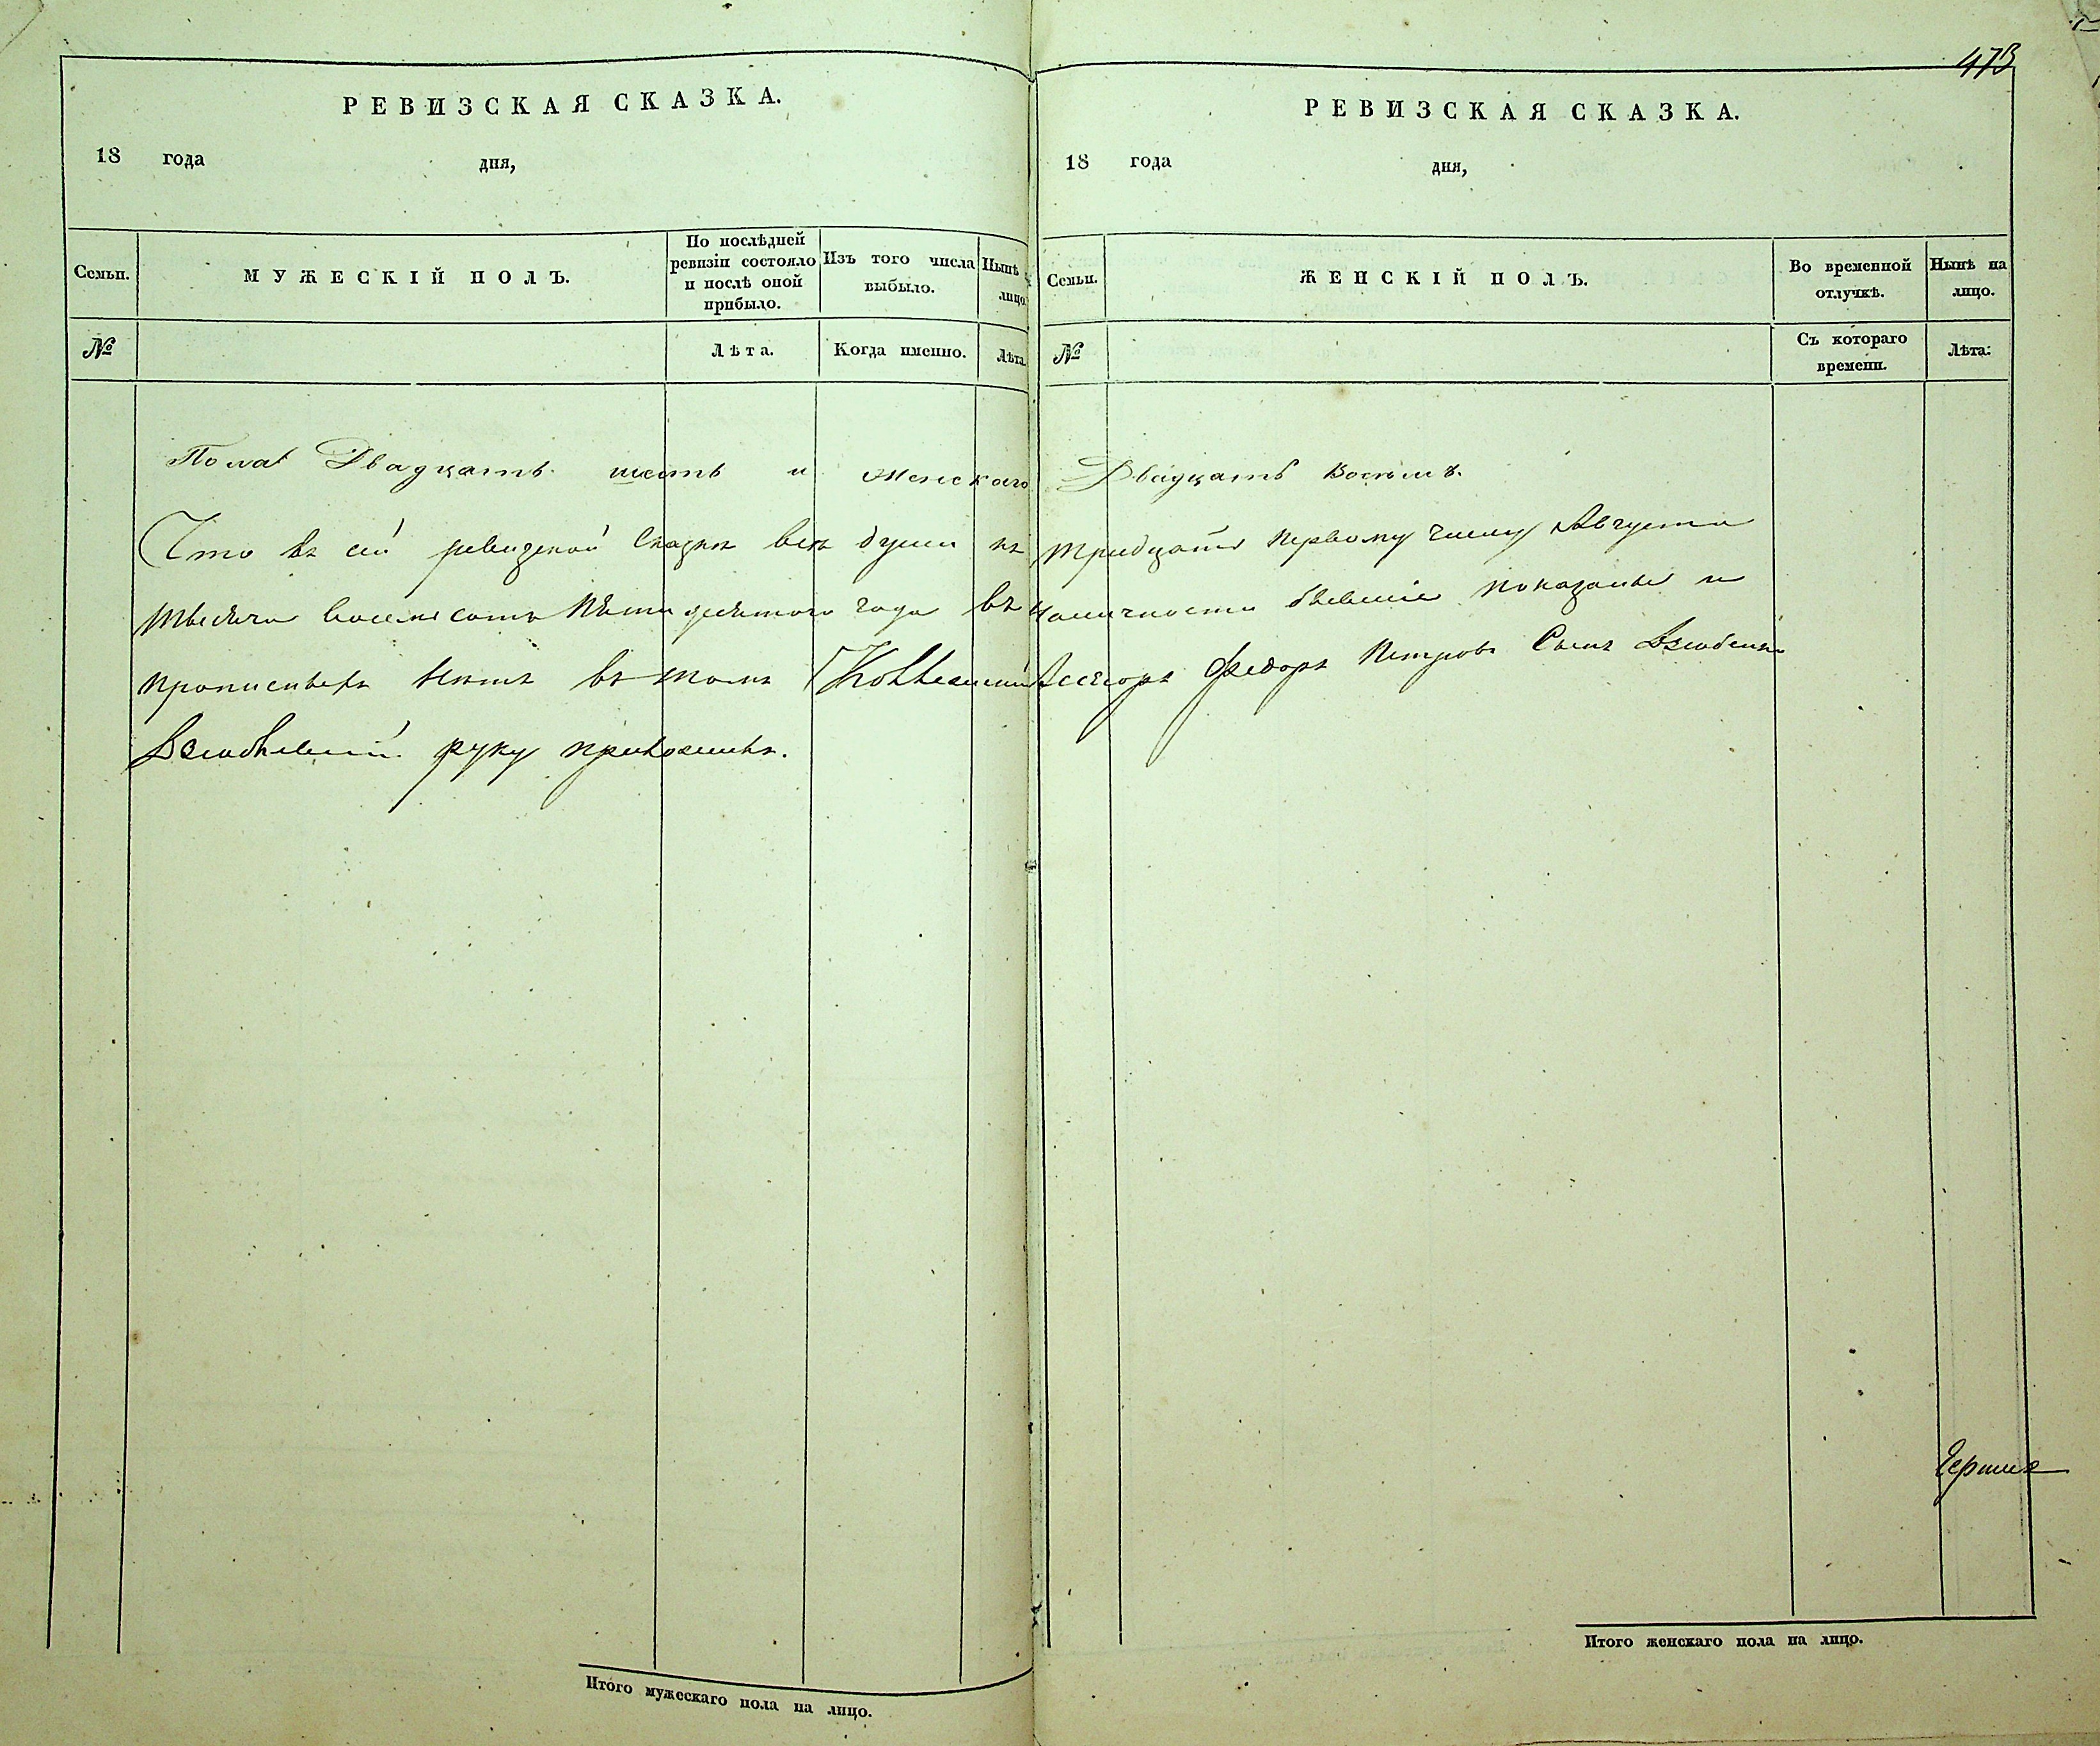 473
РЕВИЗСКАЯ СКАЗКА.
18 года дня,
Семьи.
МУЖЕСКІЙ ПОЛЪ.
По послѣдней ревизіи состояло и послѣ оной прибыло.
Изъ того числа выбыло.
Нынѣ на лицо.
№
Лѣта.
Когда именно.
Лѣта.
РЕВИЗСКАЯ СКАЗКА.
18 года дня,
Семьи.
ЖЕНСКІЙ ПОЛЪ.
Во временной отлучкѣ.
Нынѣ на лицо.
№
Съ котораго времени.
Лѣта:
Пола Двадцать шесть и женскаго Двадцать восемь.
Что въ сей ревизской сказкѣ всѣ души къ тридцать первому числу Августа
тысяча восемьсотъ пятидесятого года въ наличности бывшіе показаны и
прописныхъ нѣтъ въ томъ Коллежскій Ассесоръ Федоръ Петровъ Сынъ
руку приложилъ.
Итого мужескаго пола на лицо.
Итого женскаго пола на лицо.